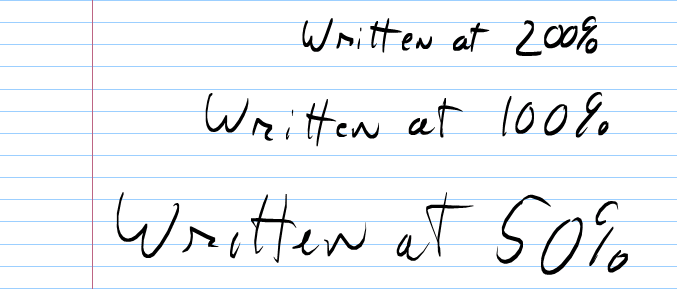 Written at 200%
Written at 100%
Written at 50%